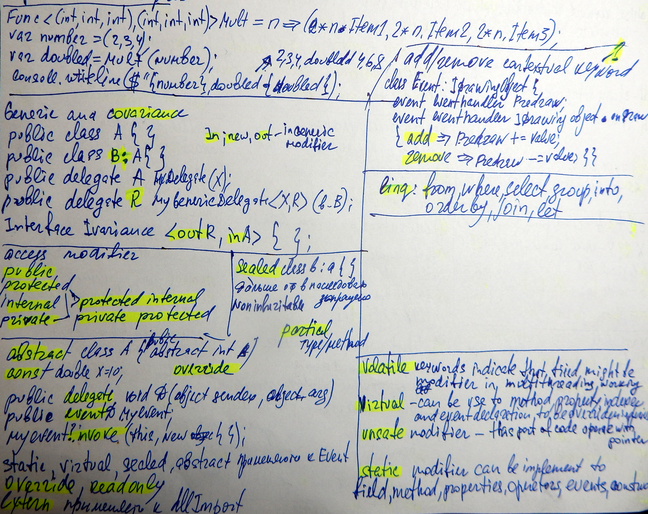 Func<(int,int,int),(int,int,int)> Mult = n => (2*n.Item1, 2*n.Item2, 2*n.Item3);
var number = (2,3,4);
var doubled = Mult(number);
console.writeline($"{number}, doubled {doubled}");
2,3,4, doubled 4,6,8
add/remove contextual keyword
class Event: IDrawingObject {
event eventhandler Predraw;
event eventhandler IDrawing object.
{ add => Predraw += value;
remove => Predraw -= value; } }
Generic and covariance
public class A { }
public class B: A { }
public delegate A MyDelegate(X);
public delegate R MyGenericDelegate<X,R>
In, new, out - in generic
modifier
Interface Ivariance <out R, in A> { };
linq: from, where, select, group, into,
orderby, join, let
access modifier
public
protected
internal
private
protected internal
private protected
sealed class b: a { }
дальше
noninheritable запрещено
partial
type/method
abstract class A { public abstract int
const double x=10;
override
public delegate void D(object sender, object arg)
public event D Myevent;
myevent.invoke(this, new { });
static, virtual, sealed, abstract применимо к Event
override readonly
extern применяем к dllImport
volatile keywords indicate that, field, might be
modifier in multithreading, working
Virtual - can be use to method, property, indexer
and event
unsafe modifier - this part of code operate with
pointer
static modifier can be implement to
field, method, properties, operators, events,